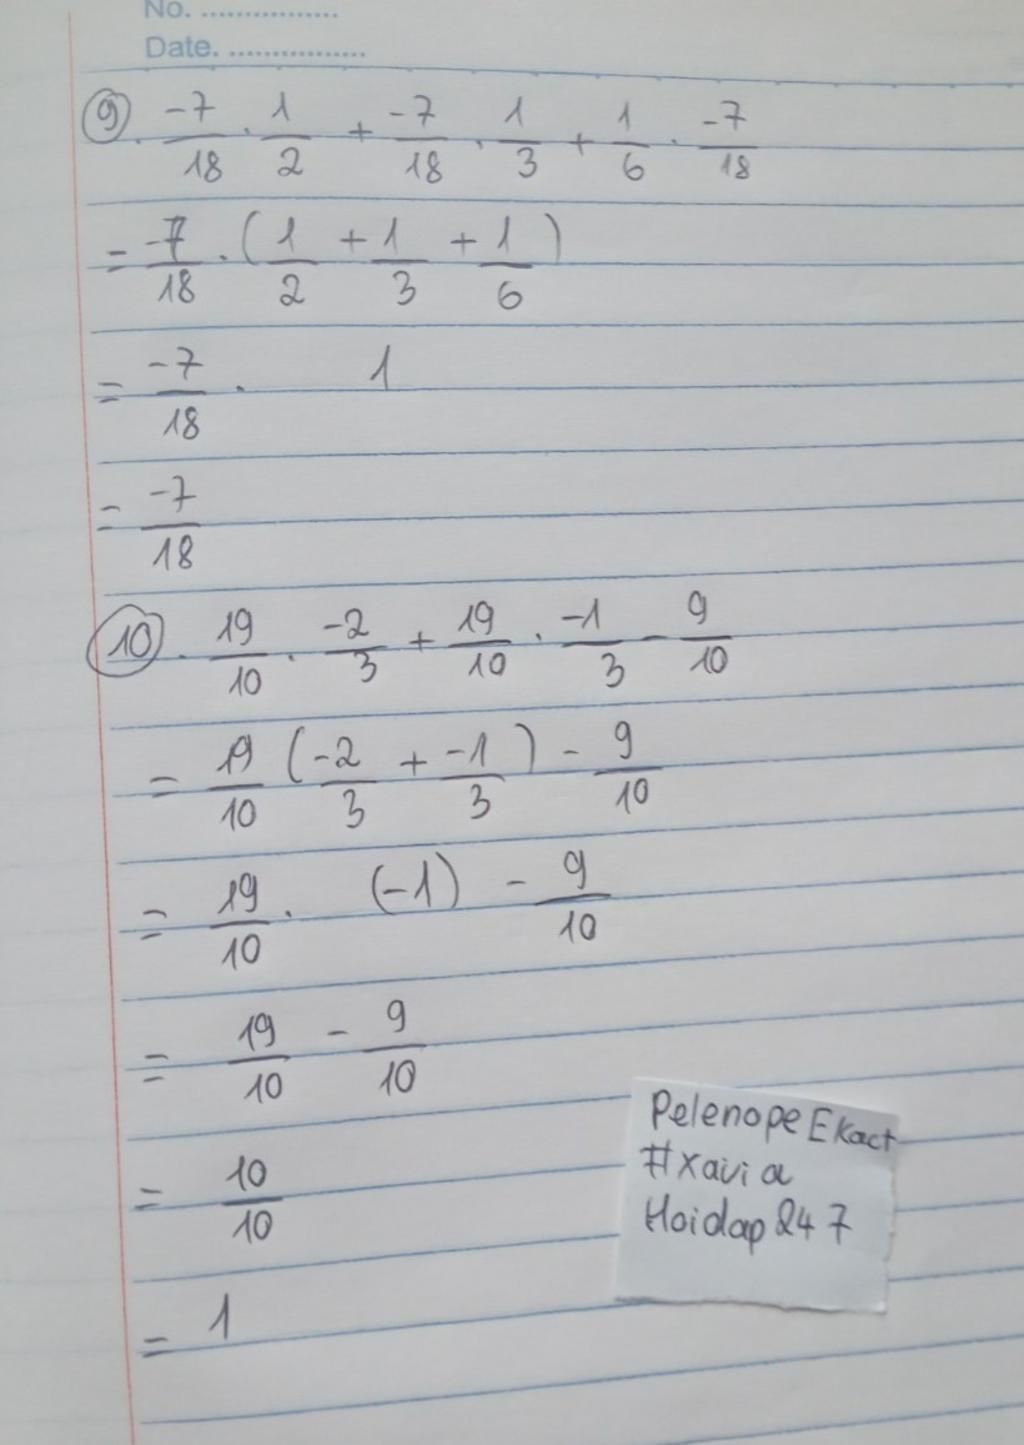 No. ................
Date. ................
9. -7/18 . 1/2 + -7/18 . 1/3 + 1/6 . -7/18
= -7/18 . ( 1/2 + 1/3 + 1/6 )
= -7/18 . 1
= -7/18
10. 19/10 . -2/3 + 19/10 . -1/3 - 9/10
= 19/10 ( -2/3 + -1/3 ) - 9/10
= 19/10 . (-1) - 9/10
= 19/10 - 9/10
= 10/10
= 1
PelenopeEkact
#xavia
Hoidap247